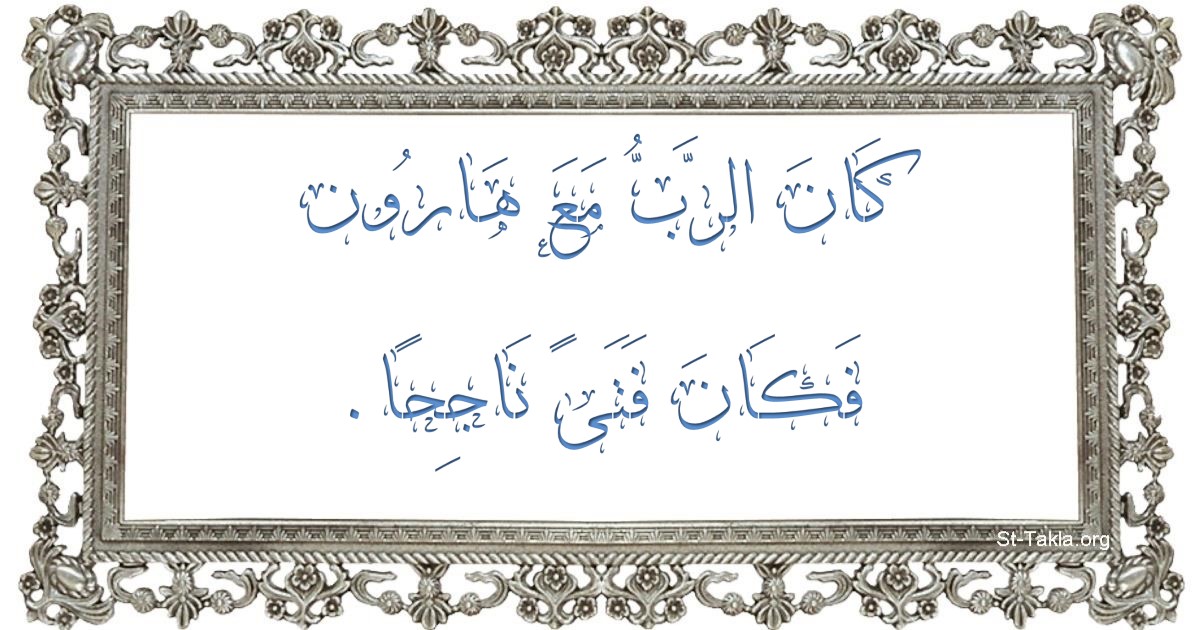 كَانَ الرَّبُّ مَعَ هَارُون
فَكَانَ فَتَىً نَاجِحًا .
St-Takla.org